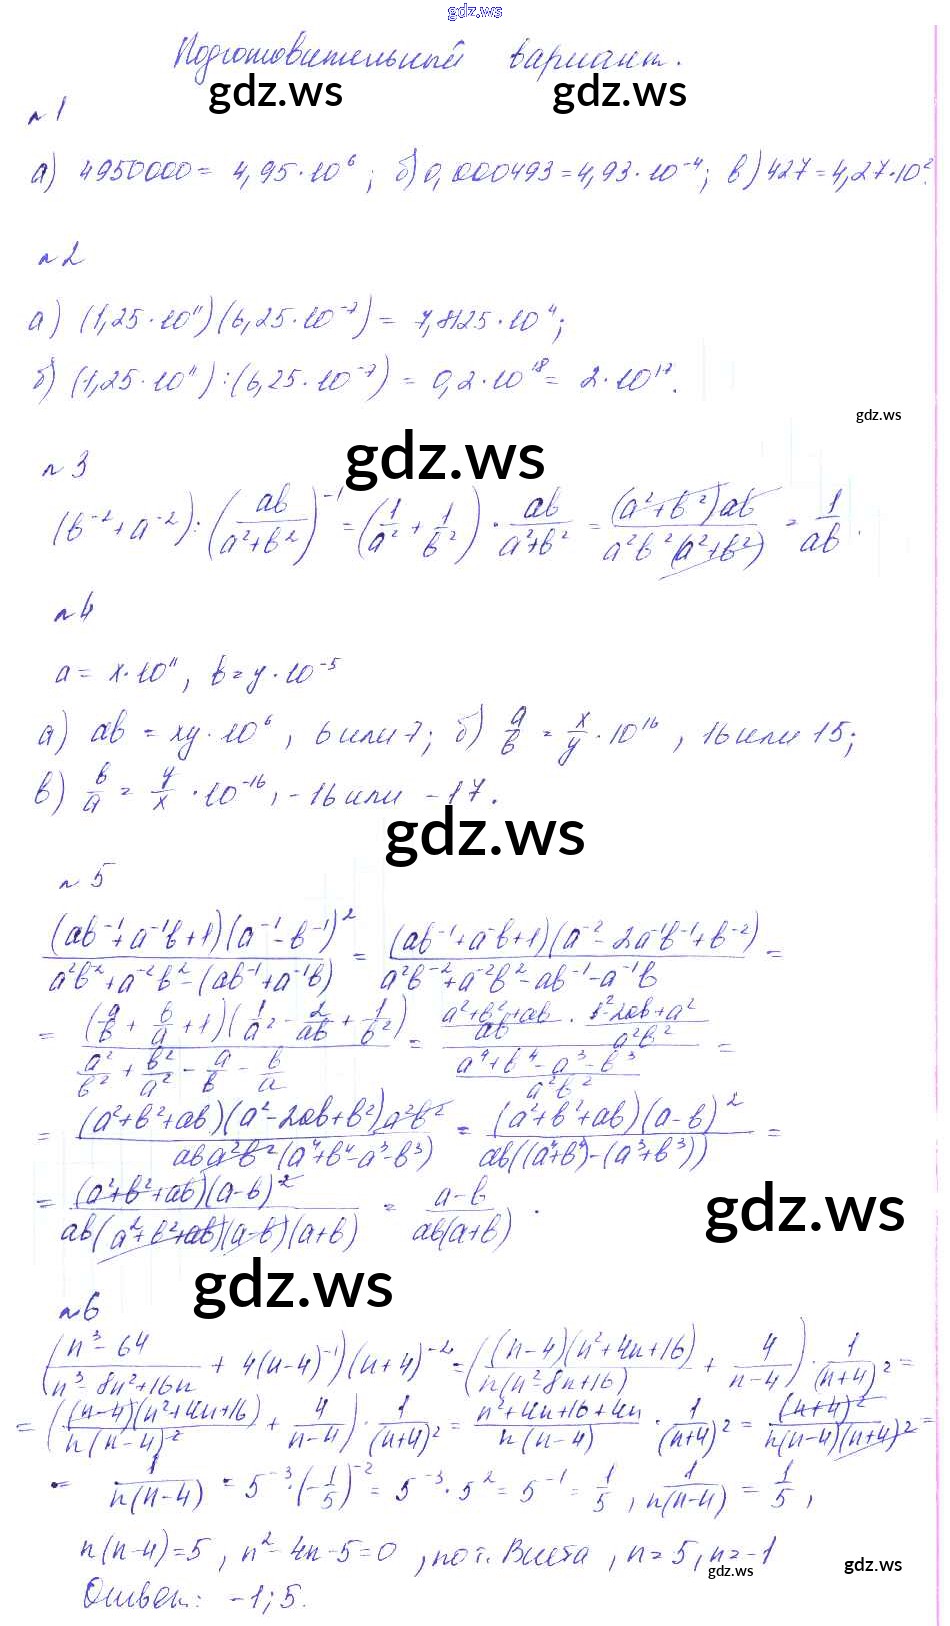 gdz.ws
Подготовительный вариант.
gdz.ws gdz.ws
№1
а) 4950000 = 4,95·10⁶; б) 0,000493 = 4,93·10⁻⁴; в) 427 = 4,27·10².
№2
а) (1,25·10¹¹)(6,25·10⁻⁷) = 7,8125·10⁴;
б) (1,25·10¹¹):(6,25·10⁻⁷) = 0,2·10¹⁸ = 2·10¹⁷.
gdz.ws
№3
gdz.ws
(b⁻²+a⁻²):(ab/(a²+b²))⁻¹ = (1/a² + 1/b²)·ab/(a²+b²) = (a²+b²)ab/(a²b²(a²+b²)) = 1/ab.
№4
a = x·10¹¹, b = y·10⁻⁵
а) ab = xy·10⁶, 6 или 7; б) a/b = x/y·10¹⁶, 16 или 15;
в) b/a = y/x·10⁻¹⁶, -16 или -17.
gdz.ws
№5
(ab⁻¹+a⁻¹b+1)(a⁻¹-b⁻¹)²/(a²b⁻²+a⁻²b²-(ab⁻¹+a⁻¹b)) = (ab⁻¹+a⁻¹b+1)(a⁻²-2a⁻¹b⁻¹+b⁻²)/(a²b⁻²+a⁻²b²-ab⁻¹-a⁻¹b) =
= (a/b + b/a + 1)(1/a² - 2/ab + 1/b²)/(a²/b² + b²/a² - a/b - b/a) = ((a²+b²+ab)/ab · (b²-2ab+a²)/a²b²)/((a⁴+b⁴-a³-b³)/a²b²) =
= (a²+b²+ab)(a²-2ab+b²)a²b²/(ab a²b²(a⁴+b⁴-a³-b³)) = (a²+b²+ab)(a-b)²/(ab((a⁴+b⁴)-(a³+b³))) =
= (a²+b²+ab)(a-b)²/(ab(a²+b²+ab)(a-b)(a+b)) = (a-b)/(ab(a+b)).
gdz.ws
gdz.ws
№6
((n³-64)/(n³-8n²+16n) + 4(n-4)⁻¹)(n+4)⁻² = ((n-4)(n²+4n+16)/(n(n²-8n+16)) + 4/(n-4))·1/(n+4)² =
= ((n-4)(n²+4n+16)/(n(n-4)²) + 4/(n-4))·1/(n+4)² = (n²+4n+16+4n)/(n(n-4))·1/(n+4)² = (n+4)²/(n(n-4)(n+4)²) =
= 1/(n(n-4)) = 5⁻³·(-1/5)⁻² = 5⁻³·5² = 5⁻¹ = 1/5, 1/(n(n-4)) = 1/5,
n(n-4)=5, n²-4n-5=0, по т. Виета, n=5, n=-1
gdz.ws gdz.ws
Ответ: -1; 5.